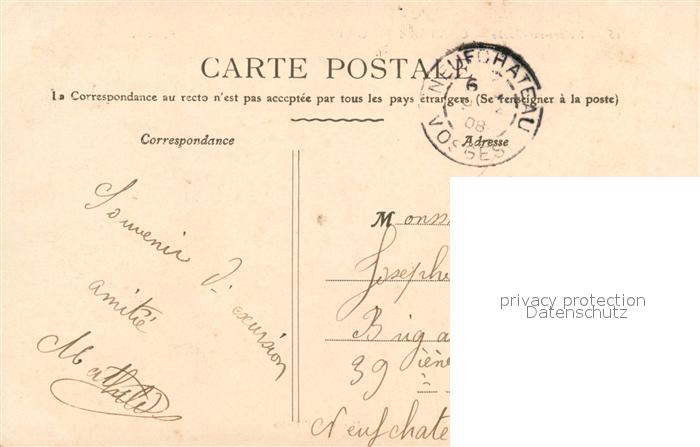 CARTE POSTALE
NEUFCHATEAU
6
08
VOSGES
La Correspondance au recto n'est pas acceptée par tous les pays étrangers (Se renseigner à la poste)
Correspondance
Adresse
Souvenir d'exursion
amitié
Mathilde
Monss
Josephe
Briga
39 ième
Neufchate
privacy protection
Datenschutz